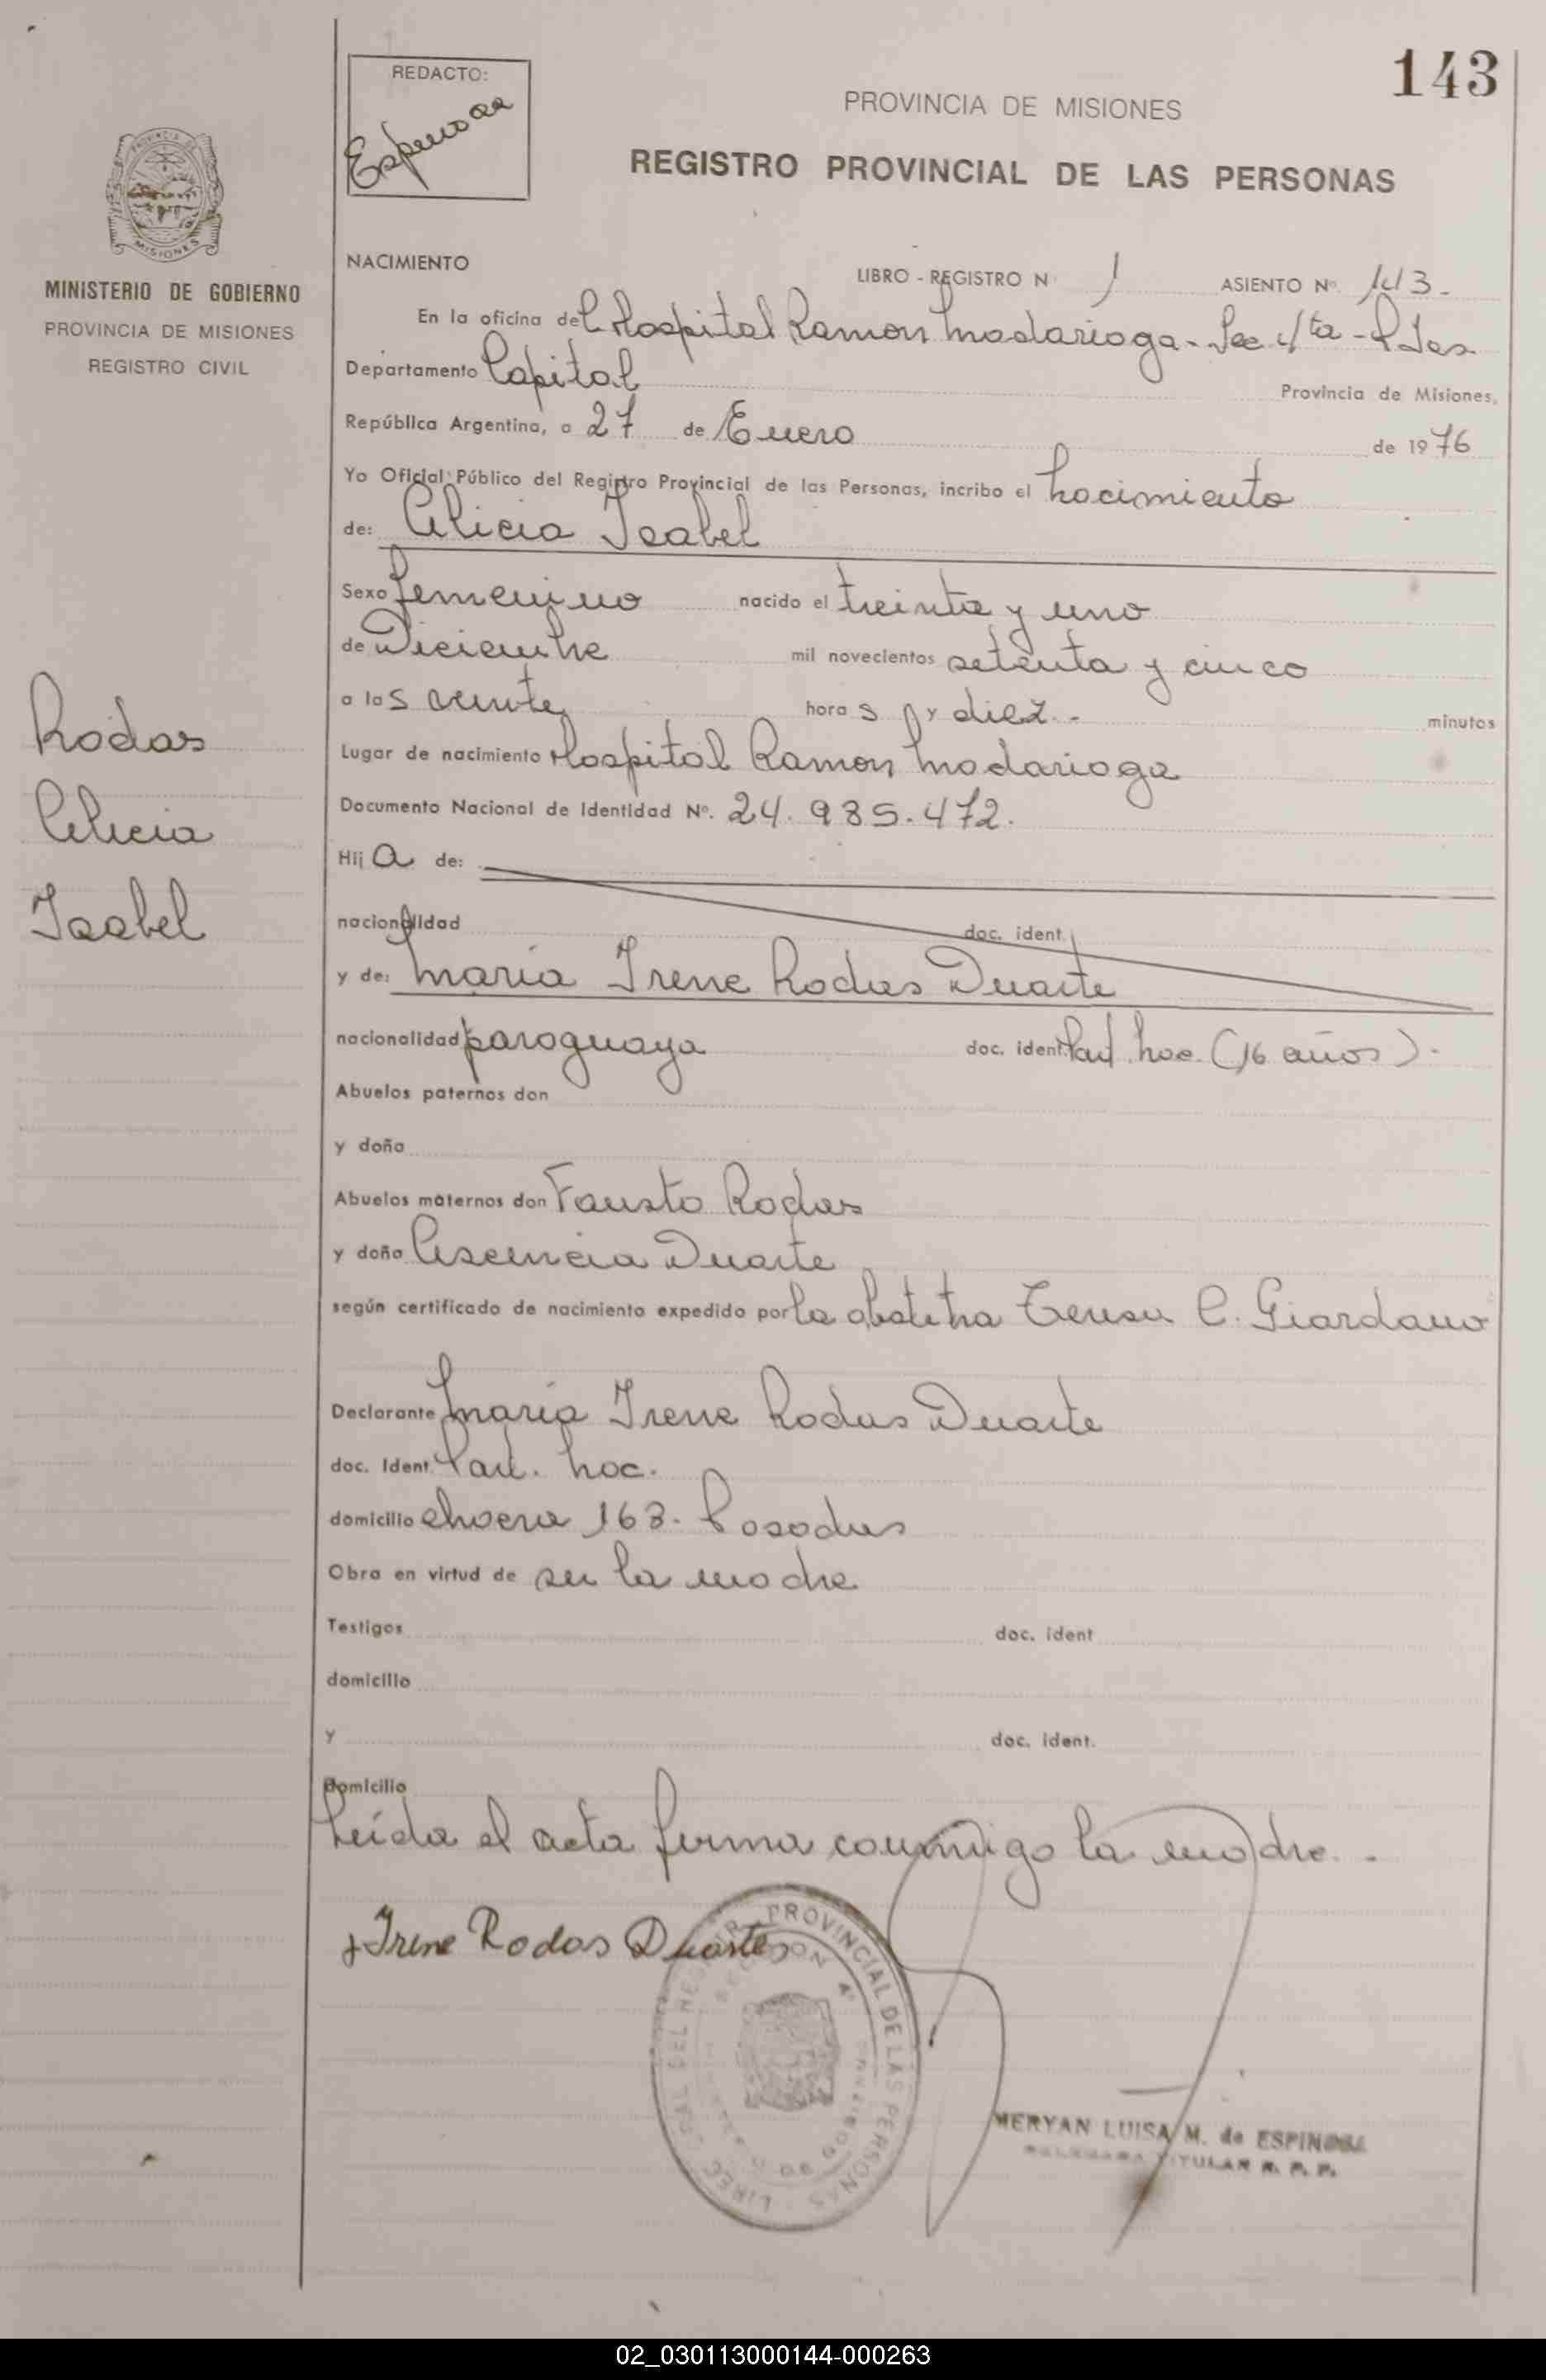 143
REDACTO:
Espinosa
PROVINCIA DE MISIONES
REGISTRO PROVINCIAL DE LAS PERSONAS
MISIONES
MINISTERIO DE GOBIERNO
PROVINCIA DE MISIONES
REGISTRO CIVIL
NACIMIENTO LIBRO - REGISTRO N° 1 ASIENTO N° 143.
En la oficina del Hospital Ramon Madariaga - Sec 4ta - Pdas
Departamento Capital Provincia de Misiones,
República Argentina, a 27 de Enero de 1976
Yo Oficial Público del Registro Provincial de las Personas, incribo el nacimiento
de: Alicia Isabel
Sexo femenino nacido el treinta y uno
de Diciembre mil novecientos setenta y cinco
a las veinte horas y diez.- minutos
Rodas
Alicia
Isabel
Lugar de nacimiento Hospital Ramon Madariaga
Documento Nacional de Identidad N°. 24.985.472.
Hija de:
nacionalidad doc. ident.
y de: María Irene Rodas Duarte
nacionalidad paraguaya doc. ident. nac. (16 años).
Abuelos paternos don
y doña
Abuelos maternos don Fausto Rodas
y doña Asencia Duarte
según certificado de nacimiento expedido por la obstetra Teresa C. Giardano
Declarante María Irene Rodas Duarte
doc. Ident. nac.
domicilio 163. Posadas
Obra en virtud de ser la madre
Testigos doc. ident
domicilio
y doc. ident.
Domicilio
Leída el acta firma conmigo la madre.-
Irene Rodas Duarte
PROVINCIAL DE LAS PERSONAS
SECCION 4ª
MERYAN LUISA M. de ESPINOSA
DELEGADA TITULAR R. P. P.
02_030113000144-000263